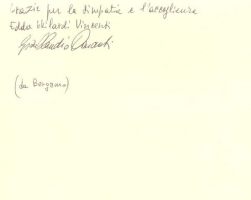 Grazie per la simpatia e l'accoglienza
Edda Ghilardi Vincenti
(da Bergamo)